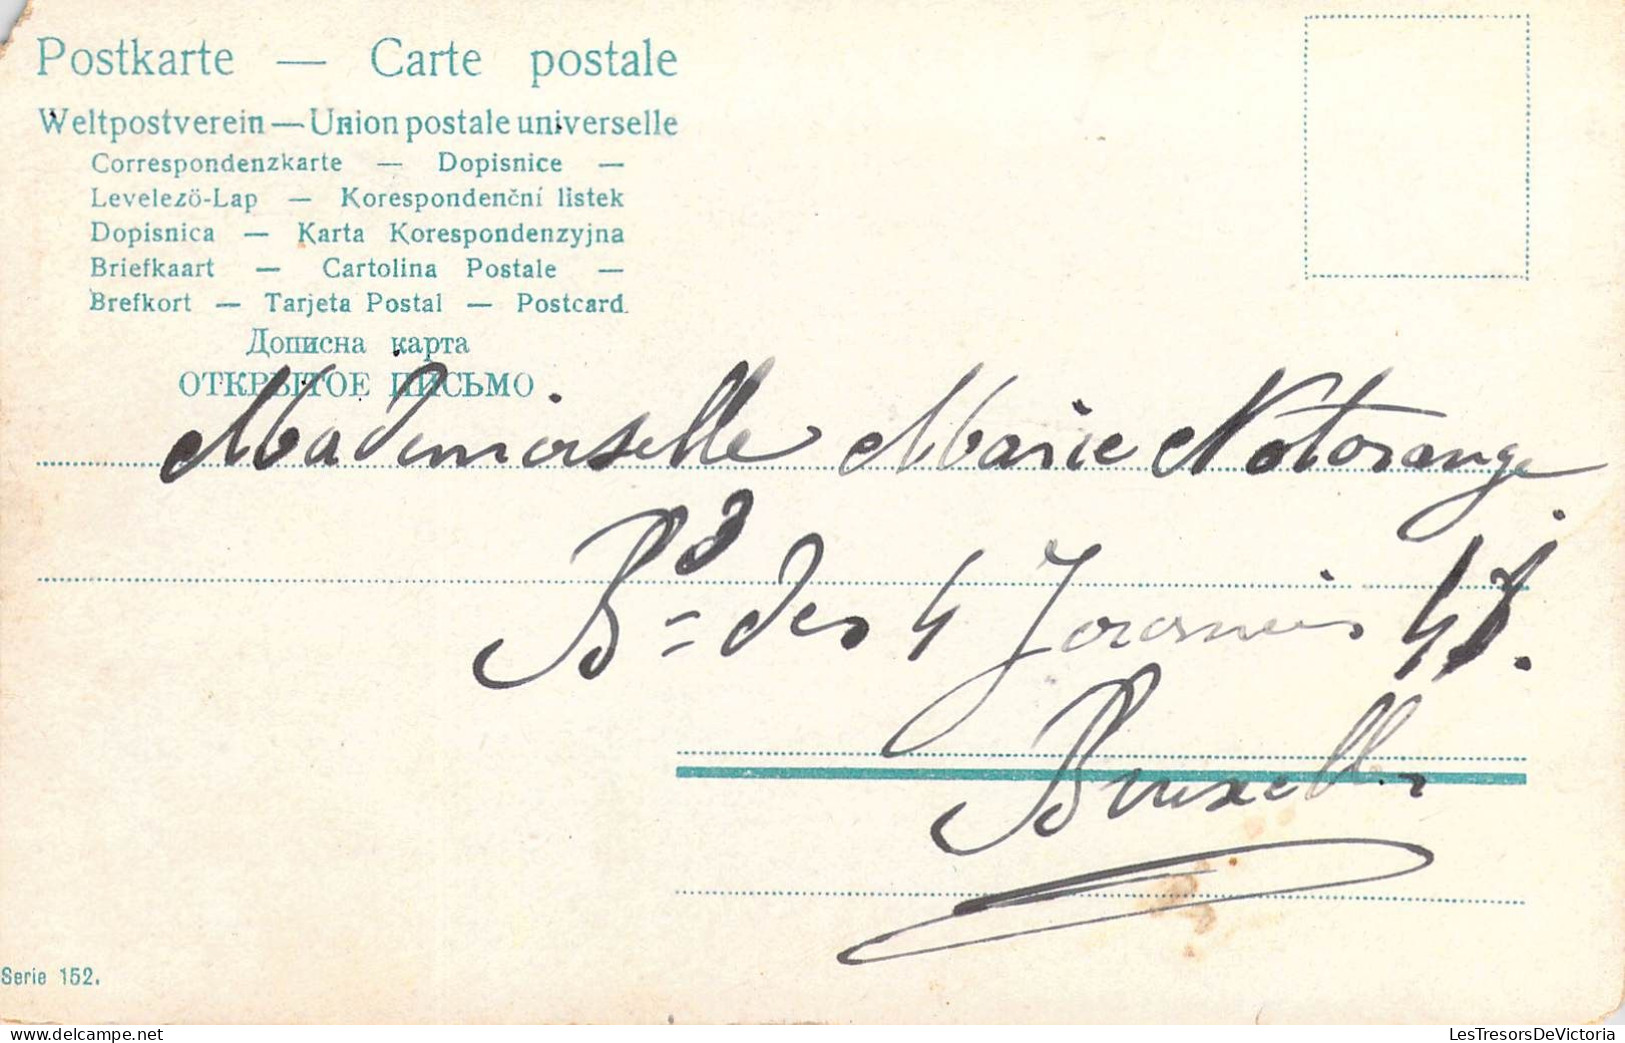 Postkarte — Carte postale
Weltpostverein — Union postale universelle
Correspondenzkarte — Dopisnice —
Levelező-Lap — Korespondenční listek
Dopisnica — Karta Korespondenzyjna
Briefkaart — Cartolina Postale —
Brefkort — Tarjeta Postal — Postcard.
Дописна карта
ОТКРЫТОЕ ПИСЬМО
Mademoiselle Marie Notorange
Bd des 4 Journées
Bruxelles
Serie 152.
delcampe.net
LesTresorsDeVictoria